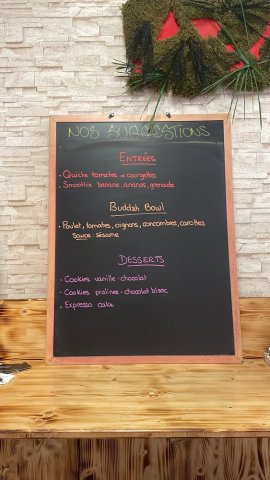 NOS SUGGESTIONS
ENTRÉES
• Quiche tomates & courgettes
• Smoothie banane, ananas, grenade
Buddah Bowl
• Poulet, tomates, oignons, concombres, carottes
Sauce : sésame
DESSERTS
• Cookies vanille - chocolat
• Cookies pralines - chocolat blanc
• Expresso cake